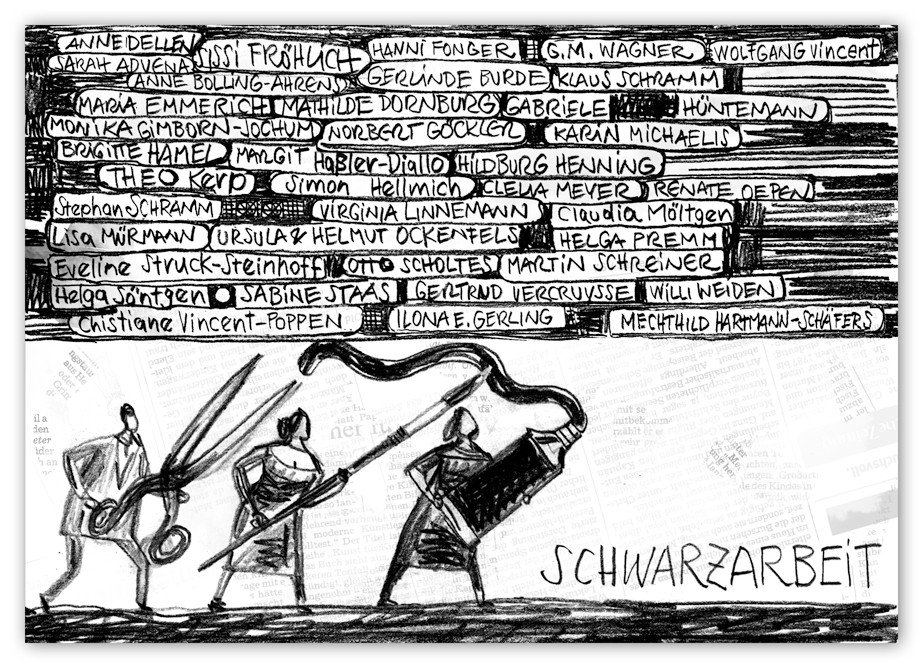 ANNE DELLEN SISSI FRÖHLICH HANNI FONGER G.M. WAGNER WOLFGANG Vincent
SARAH ADVENA
ANNE BOLLING-AHRENS GERLINDE BURDE KLAUS SCHRAMM
MARIA EMMERICH MATHILDE DORNBURG GABRIELE HÜNTEMANN
MONIKA GIMBORN-JOCHUM NORBERT GÖCKLER KARIN MICHAELIS
BRIGITTE HAMEL MARGIT Haßler-Diallo HILDBURG HENNING
THEO Kerp Simon Hellmich CLELIA MEYER RENATE OEPEN
Stephan SCHRAMM VIRGINIA LINNEMANN Claudia Möltgen
Lisa MÜRMANN URSULA & HELMUT OCKENFELS HELGA PREMM
Eveline Struck-Steinhoff OTTO SCHOLTES MARTIN SCHREINER
Helga Söntgen SABINE STAAS GERTRUD VERCRUYSSE WILLI WEIDEN
Chistiane Vincent-POPPEN ILONA E. GERLING MECHTHILD HARTMANN-SCHÄFERS
SCHWARZARBEiT